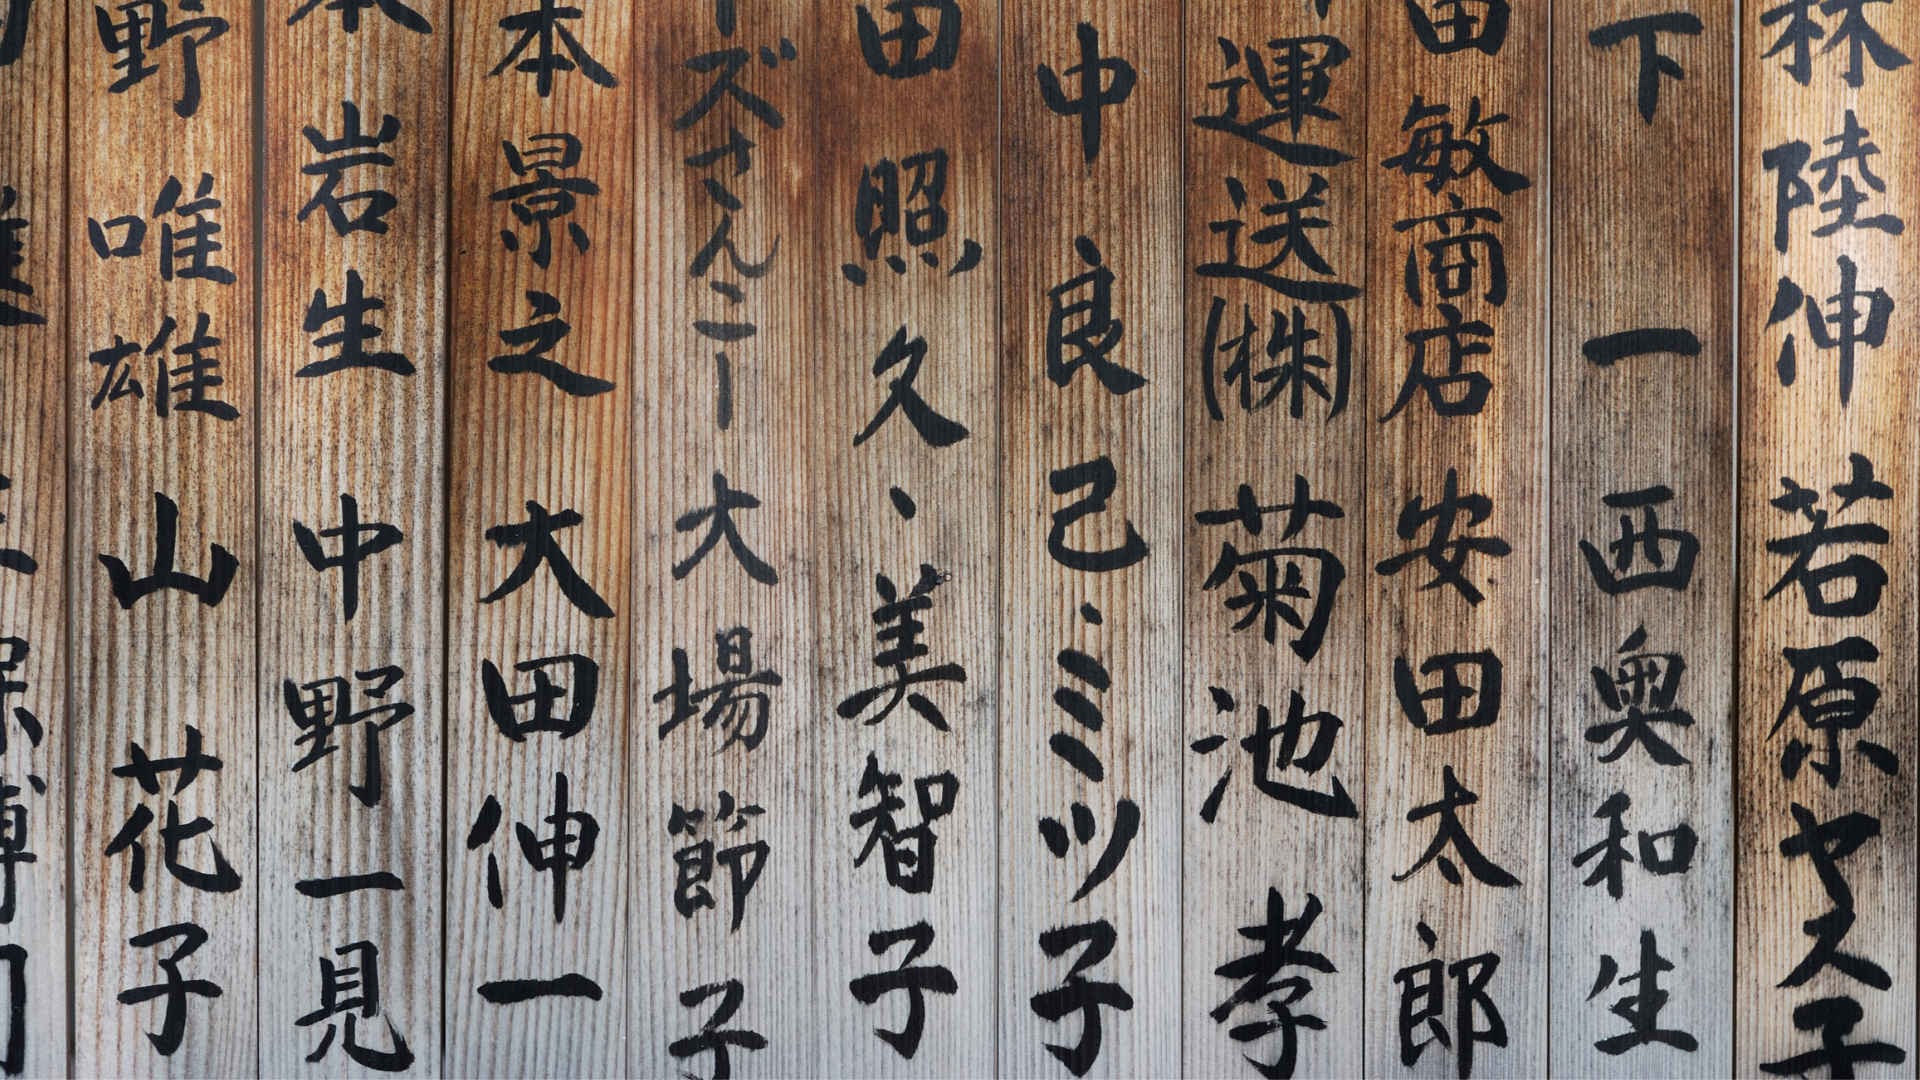 林陸伸 若原ヤス子
下一 西奥和生
田敏商店 安田太郎
運送(株) 菊池孝
中良己・ミツ子
田照久、美智子
ーズさんこー 大場節子
本景之 大田伸一
本岩生 中野一見
野唯雄 山花子